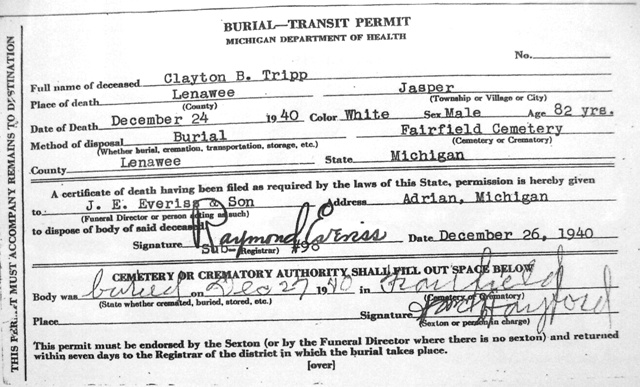 BURIAL—TRANSIT PERMIT
MICHIGAN DEPARTMENT OF HEALTH
No.
Full name of deceased Clayton B. Tripp
Place of death Lenawee Jasper
(County) (Township or Village or City)
Date of Death December 24 1940 Color White Sex Male Age 82 yrs.
Method of disposal Burial Fairfield Cemetery
(Whether burial, cremation, transportation, storage, etc.) (Cemetery or Crematory)
County Lenawee State Michigan
A certificate of death having been filed as required by the laws of this State, permission is hereby given
to: J. E. Everiss & Son Address Adrian, Michigan
(Funeral Director or person acting as such)
to dispose of body of said deceased
Signature Raymond Everiss Date December 26, 1940
Sub- (Registrar) #98
CEMETERY OR CREMATORY AUTHORITY SHALL FILL OUT SPACE BELOW
Body was buried on Dec 27 1940 in Fairfield
(State whether cremated, buried, stored, etc.) (Cemetery or Crematory)
Place Signature Hayford
(Sexton or person in charge)
This permit must be endorsed by the Sexton (or by the Funeral Director where there is no sexton) and returned
within seven days to the Registrar of the district in which the burial takes place.
[over]
THIS PER IT MUST ACCOMPANY REMAINS TO DESTINATION